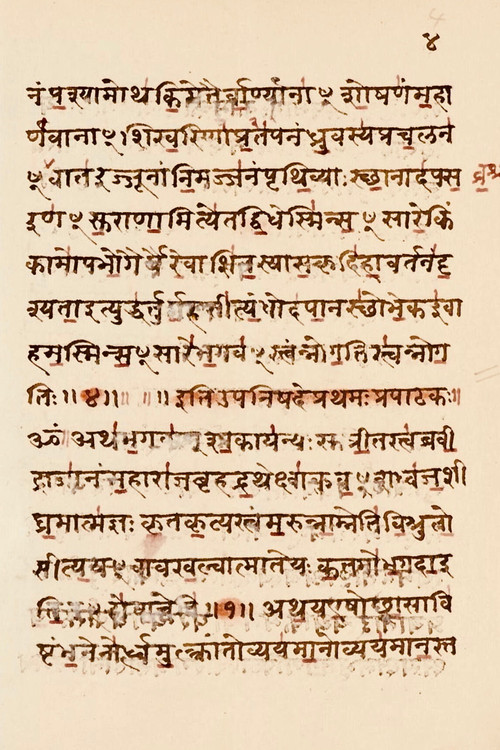 ४
नं पश्यामोथ किमेतैर्वाण्यानाꣳ शोषणं महा
र्णवानाꣳ शिखरिणां प्रतपनं ध्रुवस्य प्रचलनं
ꣳ वातरज्जूनां निमज्जनं पृथिव्याः स्थानादपस
रणꣳ सुराणामित्येतद्विधेस्मिन्सꣳसारे किं
कामोपभोगैर्यैरेवाशितस्यासकृदिहावर्तनं दृ
श्यता इत्युद्धर्तुमर्हसीत्यंधोदपानस्थो भेक इवा
हमस्मिन्सꣳसारे भगवꣳस्त्वन्नो गतिस्त्वन्नो ग
तिः॥४॥ ॥ ॥ इति उपनिषदे प्रथमः प्रपाठकः॥
ॐ अथ सुप्रीतस्त्वब्रवी
द्राजानं महाराज बृहद्रथेक्ष्वाकुवꣳशध्वजशी
घ्रमात्मज्ञः कृतकृत्यस्त्वं मरुन्नाम्नेति विश्रुतो
सीत्ययꣳ वाव खल्वात्मा ते यः
॥१॥ अथ य एषोछ्वासावि
ष्टंभनेनोर्ध्वमुत्क्रांतो व्ययमानोव्ययमानस्त